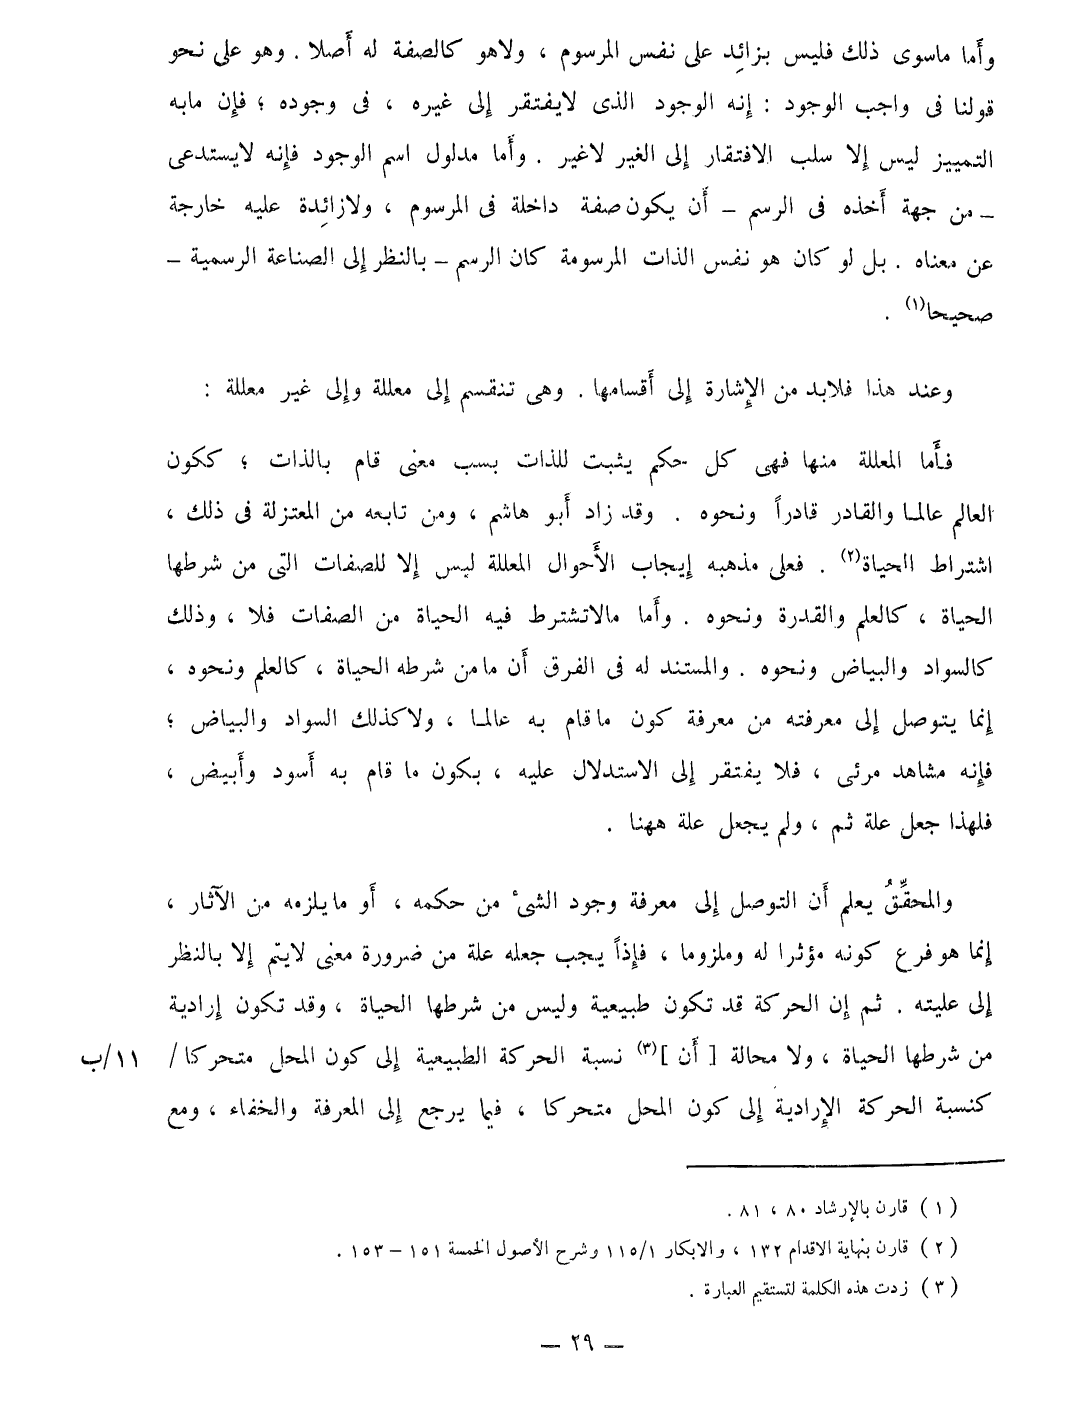 وأَما ماسوى ذلك فليس بزائِد على نفس المرسوم ، ولاهو كالصفة له أَصلا . وهو على نحو
قولنا فى واجب الوجود : إِنه الوجود الذى لايفتقر إِلى غيره ، فى وجوده ؛ فإِن مابه
التمييز ليس إِلا سلب الافتقار إِلى الغير لاغير . وأَما مدلول اسم الوجود فإِنه لايستدعى
– من جهة أَخذه فى الرسم – أَن يكون صفة داخلة فى المرسوم ، ولازائِدة عليه خارجة
عن معناه . بل لو كان هو نفس الذات المرسومة كان الرسم – بالنظر إِلى الصناعة الرسمية –
صحيحا(١) .
وعند هذا فلابد من الإِشارة إِلى أَقسامها . وهى تنقسم إِلى معللة وإِلى غير معللة :
فأَما المعللة منها فهى كل حكم يثبت للذات بسب معنى قام بالذات ؛ ككون
العالم عالمـا والقادر قادراً ونحوه . وقد زاد أَبو هاشم ، ومن تابعه من المعتزلة فى ذلك ،
اشتراط الحياة(٢) . فعلى مذهبه إِيجاب الأَحوال المعللة ليس إِلا للصفات التى من شرطها
الحياة ، كالعلم والقدرة ونحوه . وأَما مالاتشترط فيه الحياة من الصفات فلا ، وذلك
كالسواد والبياض ونحوه . والمستند له فى الفرق أَن مامن شرطه الحياة ، كالعلم ونحوه ،
إِنما يتوصل إِلى معرفته من معرفة كون ماقام به عالمـا ، ولاكذلك السواد والبياض ؛
فإِنه مشاهد مرئى ، فلا يفتقر إِلى الاستدلال عليه ، بكون ما قام به أَسود وأَبيض ،
فلهذا جعل علة ثم ، ولم يجعل علة ههنا .
والمحقِّقُ يعلم أَن التوصل إِلى معرفة وجود الشىْ من حكمه ، أَو مايلزمه من الآثار ،
إِنما هو فرع كونه مؤثرا له وملزوما ، فإِذاً يجب جعله علة من ضرورة معنى لايتم إِلا بالنظر
إِلى عليته . ثم إِن الحركة قد تكون طبيعية وليس من شرطها الحياة ، وقد تكون إِرادية
من شرطها الحياة ، ولا محالة [ أَن ](٣) نسبة الحركة الطبيعية إِلى كون المحل متحركا / ١١/ب
كنسبة الحركة الإِرادية إِلى كون المحل متحركا ، فيما يرجع إِلى المعرفة والخفاء ، ومع
(١) قارن بالإرشاد ٨٠ ، ٨١ .
(٢) قارن بنهاية الاقدام ١٣٢ ، والابكار ١١٥/١ وشرح الأصول الخمسة ١٥١ – ١٥٣ .
(٣) زدت هذه الكلمة لتستقيم العبارة .
– ٢٩ –